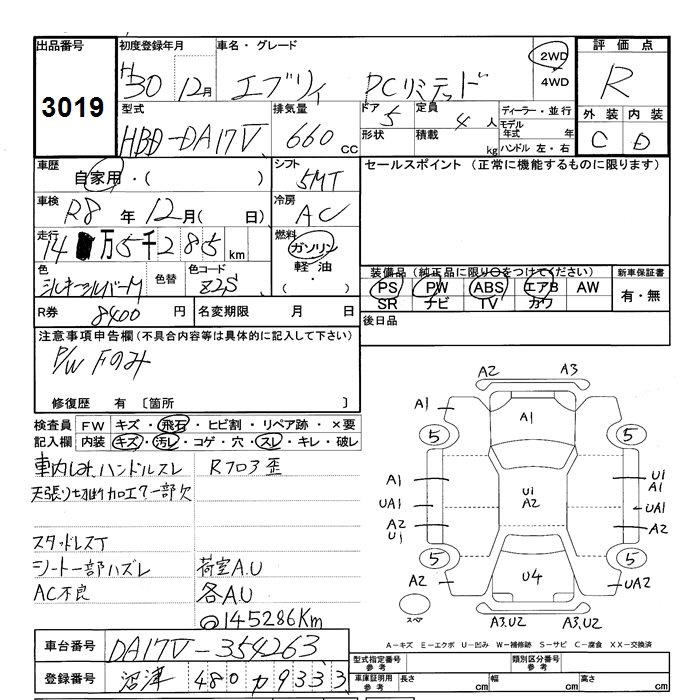 出品番号
3019
初度登録年月
H30 12月
車名・グレード
エブリィ PCリミテッド
2WD
4WD
評価点
R
外装 内装
C D
型式
HBD-DA17V
排気量
660 CC
ドア 5
形状
定員 4 人
積載 kg
ディーラー・並行
モデル年式 年
ハンドル 左・右
車歴
自家用・( )
シフト
5MT
セールスポイント (正常に機能するものに限ります)
車検
R8 年 12月( 日)
冷房
AC
走行
14 万 5 千 2 8 5 km
燃料
ガソリン
軽油
( ・ )
色
シルキーシルバーM
色替
色コード
Z2S
装備品 (純正品に限り○をつけてください)
PS PW ABS エアB AW
SR ナビ TV カワ
新車保証書
有・無
R券 8400 円
名変期限 月 日
後日品
注意事項申告欄(不具合内容等は具体的に記入して下さい)
P/W Fのみ
修復歴 有 〔箇所 〕
検査員記入欄
FW キズ・飛石・ヒビ割・リペア跡・×要
内装 キズ・汚レ・コゲ・穴・スレ・キレ・破レ
車内しみ、ハンドルスレ
Rフロア歪
天張り切れ 加工ケ 一部欠
スタッドレスT
シート一部ハズレ
荷室A.U
AC不良
各AU
@145286Km
A2 A3
A1 A1
5 5
A1 U1 A1
UA1 U1 A2 UA1
A2 U1 A2
5 5
A2 U4 UA2
スペア
A3.U2 A3.U2
A-キズ E-エクボ U-凹み W-補修跡 S-サビ C-腐食 XX-交換済
車台番号
DA17V-354263
登録番号
沼津 480 カ 9333
型式指定番号 参考
類別区分番号 参考
車庫証明用 参考
長さ cm
幅 cm
高さ cm